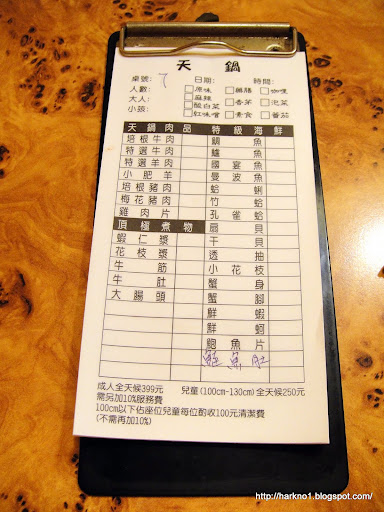 天鍋
桌號: 7 日期: 時間:
人數: □原味 □藥膳 □咖哩
大人: □麻辣 □香茅 □泡菜
小孩: □酸白菜 □素食 □番茄
□紅味噌
天鍋肉品 特級海鮮
培根牛肉 鯛魚
特選牛肉 鱸魚
特選羊肉 國宴魚
小肥羊 曼波魚
培根豬肉 蛤蜊
梅花豬肉 竹蛤
雞肉片 孔雀蛤
頂極煮物 扇貝
蝦仁漿 干貝
花枝漿 透抽
牛筋 小花枝
牛肚 蟹身
大腸頭 蟹腳
鮮蝦
鮮蚵
鮑魚片
魚肚
成人全天候399元 兒童(100cm-130cm)全天候250元
需另加10%服務費
100cm以下佔座位兒童每位酌收100元清潔費
(不需再加10%)
http://harkno1.blogspot.com/